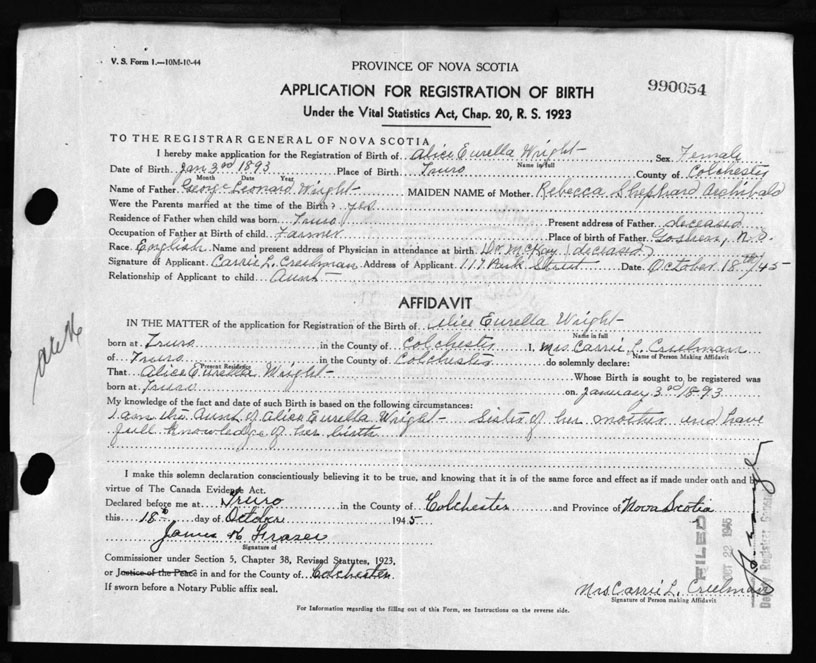 V. S. Form 1.—10M-10-44
PROVINCE OF NOVA SCOTIA
990054
APPLICATION FOR REGISTRATION OF BIRTH
Under the Vital Statistics Act, Chap. 20, R. S. 1923
TO THE REGISTRAR GENERAL OF NOVA SCOTIA
I hereby make application for the Registration of Birth of Alice Eurella Wright Sex Female
Name in full
Date of Birth Jan 3rd 1893 Place of Birth Truro County of Colchester
Month Date Year
Name of Father George Leonard Wright MAIDEN NAME of Mother Rebecca Shephard Archibald
Were the Parents married at the time of the Birth? yes
Residence of Father when child was born Truro Present address of Father deceased
Occupation of Father at Birth of child Farmer Place of birth of Father Goshen, N.S.
Race English Name and present address of Physician in attendance at birth Dr. McKay (deceased)
Signature of Applicant Carrie L. Creelman Address of Applicant 117 Street Date October 18th/45
Relationship of Applicant to child Aunt
AFFIDAVIT
IN THE MATTER of the application for Registration of the Birth of Alice Eurella Wright
Name in full
born at Truro in the County of Colchester I, Mrs. Carrie L. Creelman
Name of Person Making Affidavit
of Truro in the County of Colchester do solemnly declare:
Present Residence
That Alice Eurella Wright Whose Birth is sought to be registered was
born at Truro on January 3rd 1893
My knowledge of the fact and date of such Birth is based on the following circumstances:
I am the Aunt of Alice Eurella Wright — Sister of her mother and have
full knowledge of her birth
I make this solemn declaration conscientiously believing it to be true, and knowing that it is of the same force and effect as if made under oath and by
virtue of The Canada Evidence Act.
Declared before me at Truro in the County of Colchester and Province of Nova Scotia
this 18th day of October 1945
James H Fraser
Signature of
Commissioner under Section 5, Chapter 38, Revised Statutes, 1923,
or Justice of the Peace in and for the County of Colchester
If sworn before a Notary Public affix seal.
Mrs. Carrie L. Creelman
Signature of Person making Affidavit
FILED
OCT 22 1945
Deputy Registrar General
For Information regarding the filling out of this Form, see Instructions on the reverse side.